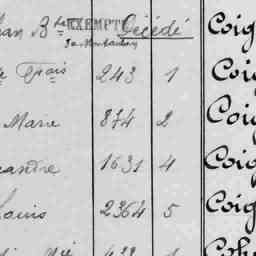 Bte EXEMPTÉ Décédé Coig
çois 243 1 Coig
Marie 874 2 Coig
eandre 1631 4 Coig
Louis 2364 5 Coig